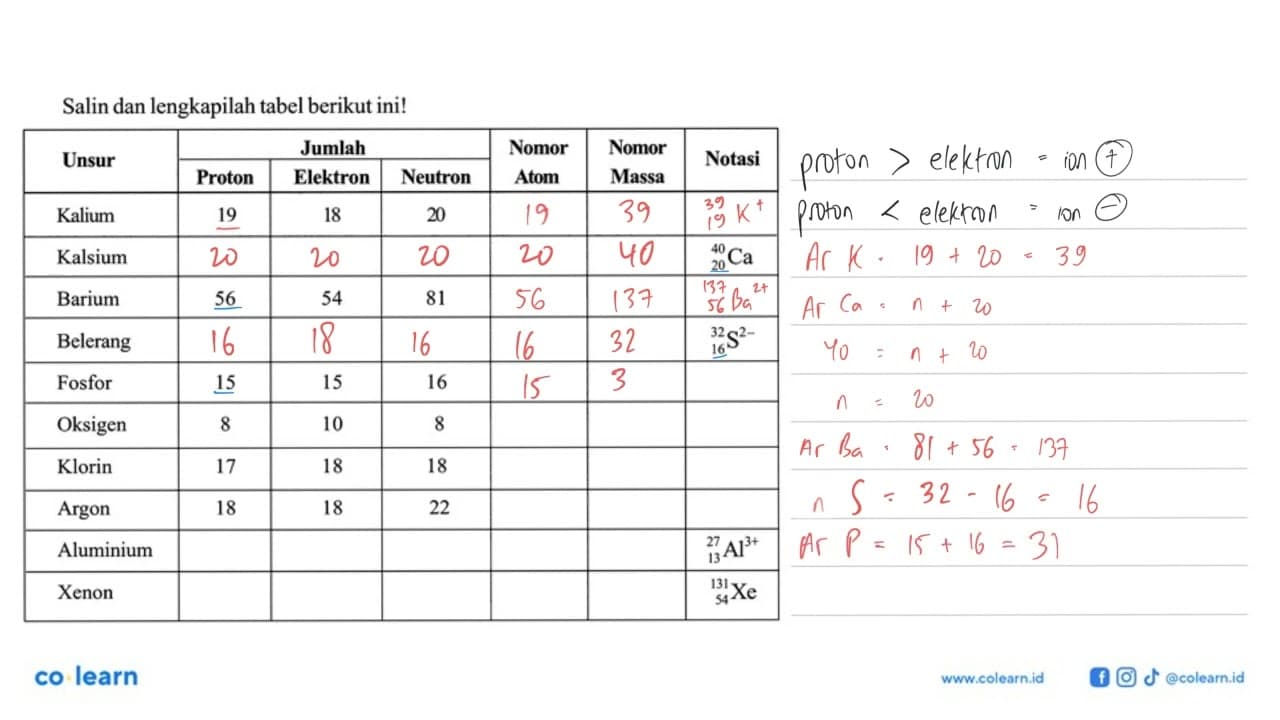 Salin dan lengkapilah tabel berikut ini!
Unsur Jumlah Nomor Atom Nomor Massa Notasi
Proton Elektron Neutron
Kalium 19 18 20 19 39 39 19 K+
Kalsium 20 20 20 20 40 40 20 Ca
Barium 56 54 81 56 137 137 56 Ba 2+
Belerang 16 18 16 16 32 32 16 S2−
Fosfor 15 15 16 15 3
Oksigen 8 10 8
Klorin 17 18 18
Argon 18 18 22
Aluminium 27 13 Al3+
Xenon 131 54 Xe
proton > elektron = ion +
proton < elektron = ion −
Ar K = 19 + 20 = 39
Ar Ca = n + 20
40 = n + 20
n = 20
Ar Ba = 81 + 56 = 137
n S = 32 - 16 = 16
Ar P = 15 + 16 = 31
co learn
www.colearn.id
@colearn.id